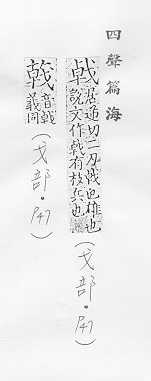 四聲篇海
戟 居逆切二刃戟也雄也
說文作戟有枝兵也
(戈部·P47)
音戟
義同
(戈部·P47)